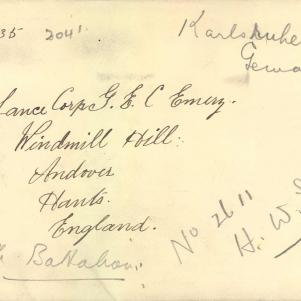 35 2041
Karlsruhe
Lance Corp G. E. C Emery.
Windmill Hill.
Andover
Hants.
England.
No 2611
H. W.
Battalion